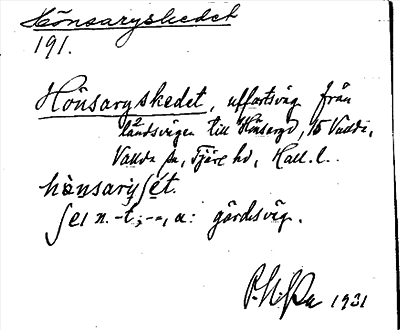 Hönsaryskedet
191.
Hönsaryskedet, uffartsväg från
landsvägen till Hönsaryd, 15 Vallda,
Vallda sn, Fjäre hd, Hall. l.
hönsaryʃét.
ʃei n. -t; -=, a: gårdsväg.
1931